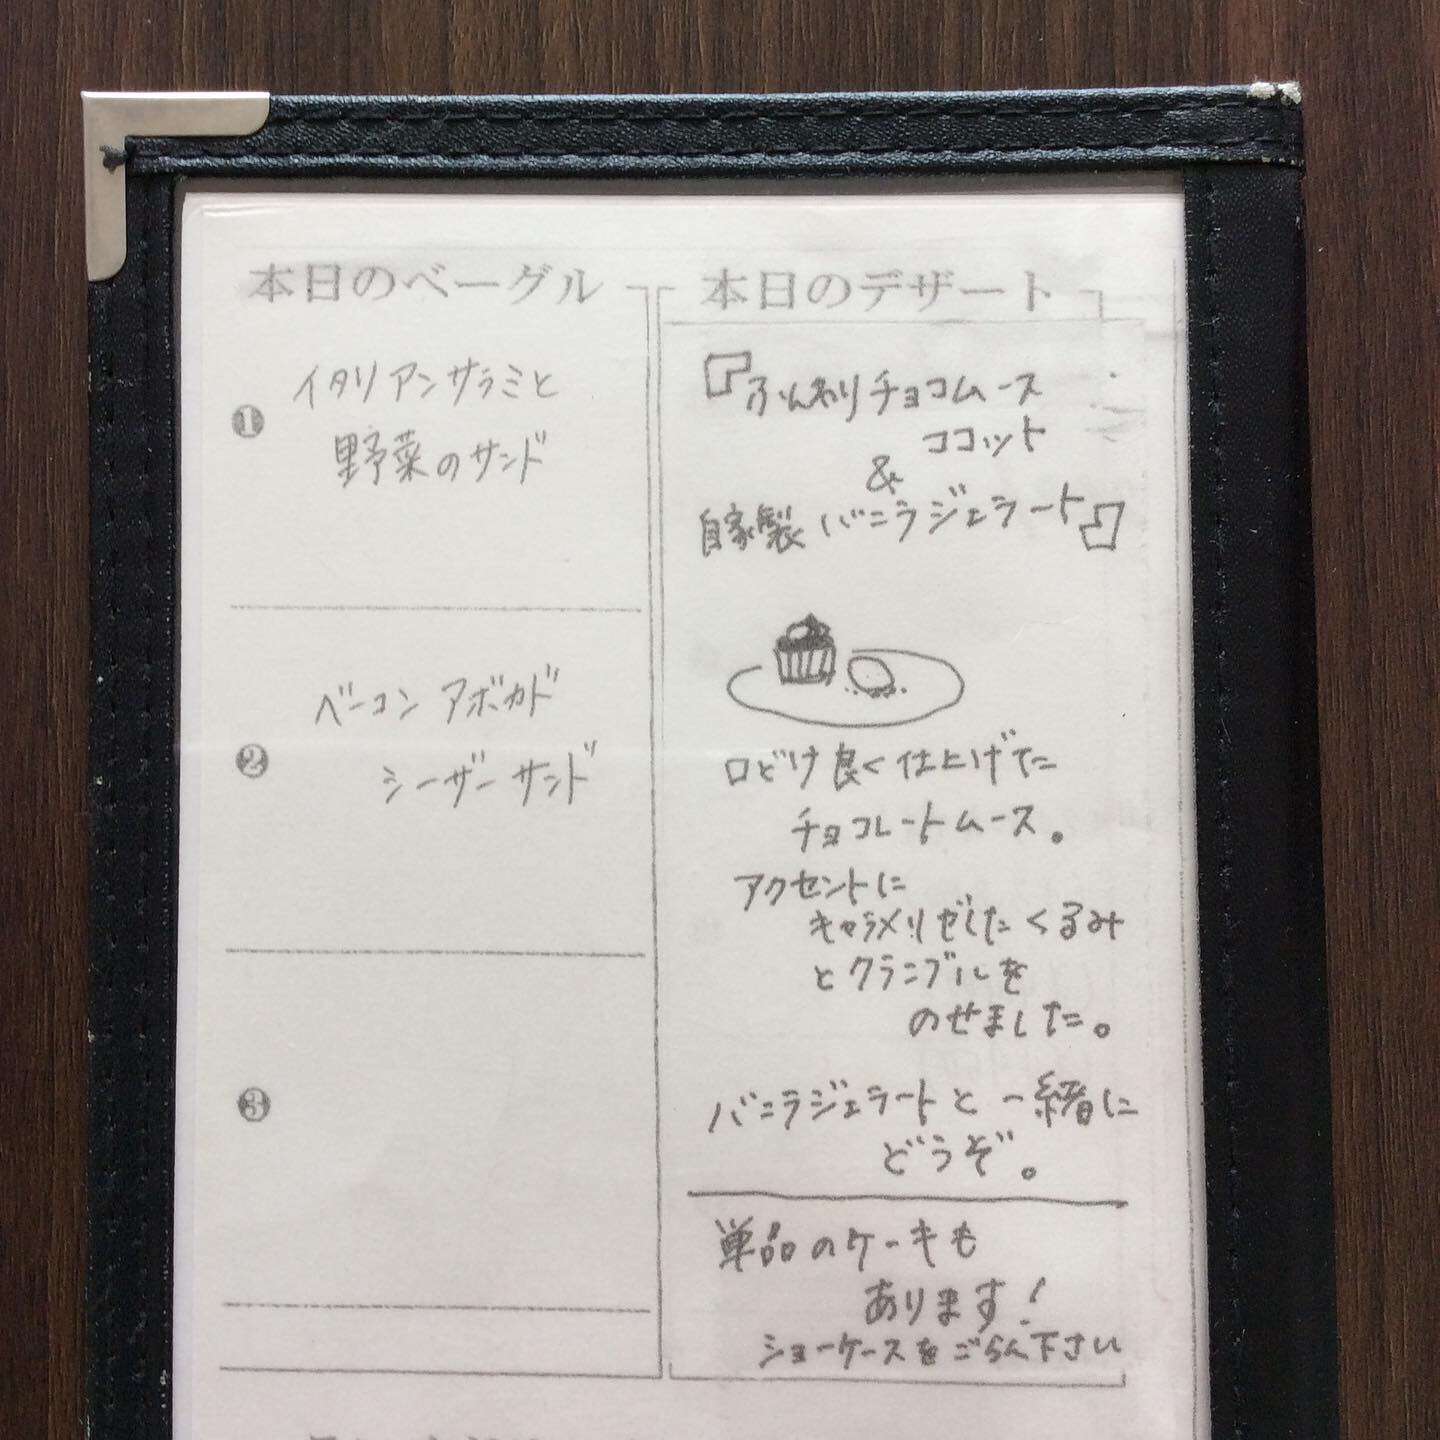 本日のベーグル
❶
イタリアンサラミと
野菜のサンド
❷
ベーコン アボカド
シーザーサンド
❸
本日のデザート
『ふんわりチョコムース
ココット
&
自家製 バニラジェラート』
口どけ良く仕上げた
チョコレートムース。
アクセントに
キャラメリゼしたくるみ
とクランブルを
のせました。
バニラジェラートと一緒に
どうぞ。
単品のケーキも
あります!
ショーケースをごらん下さい